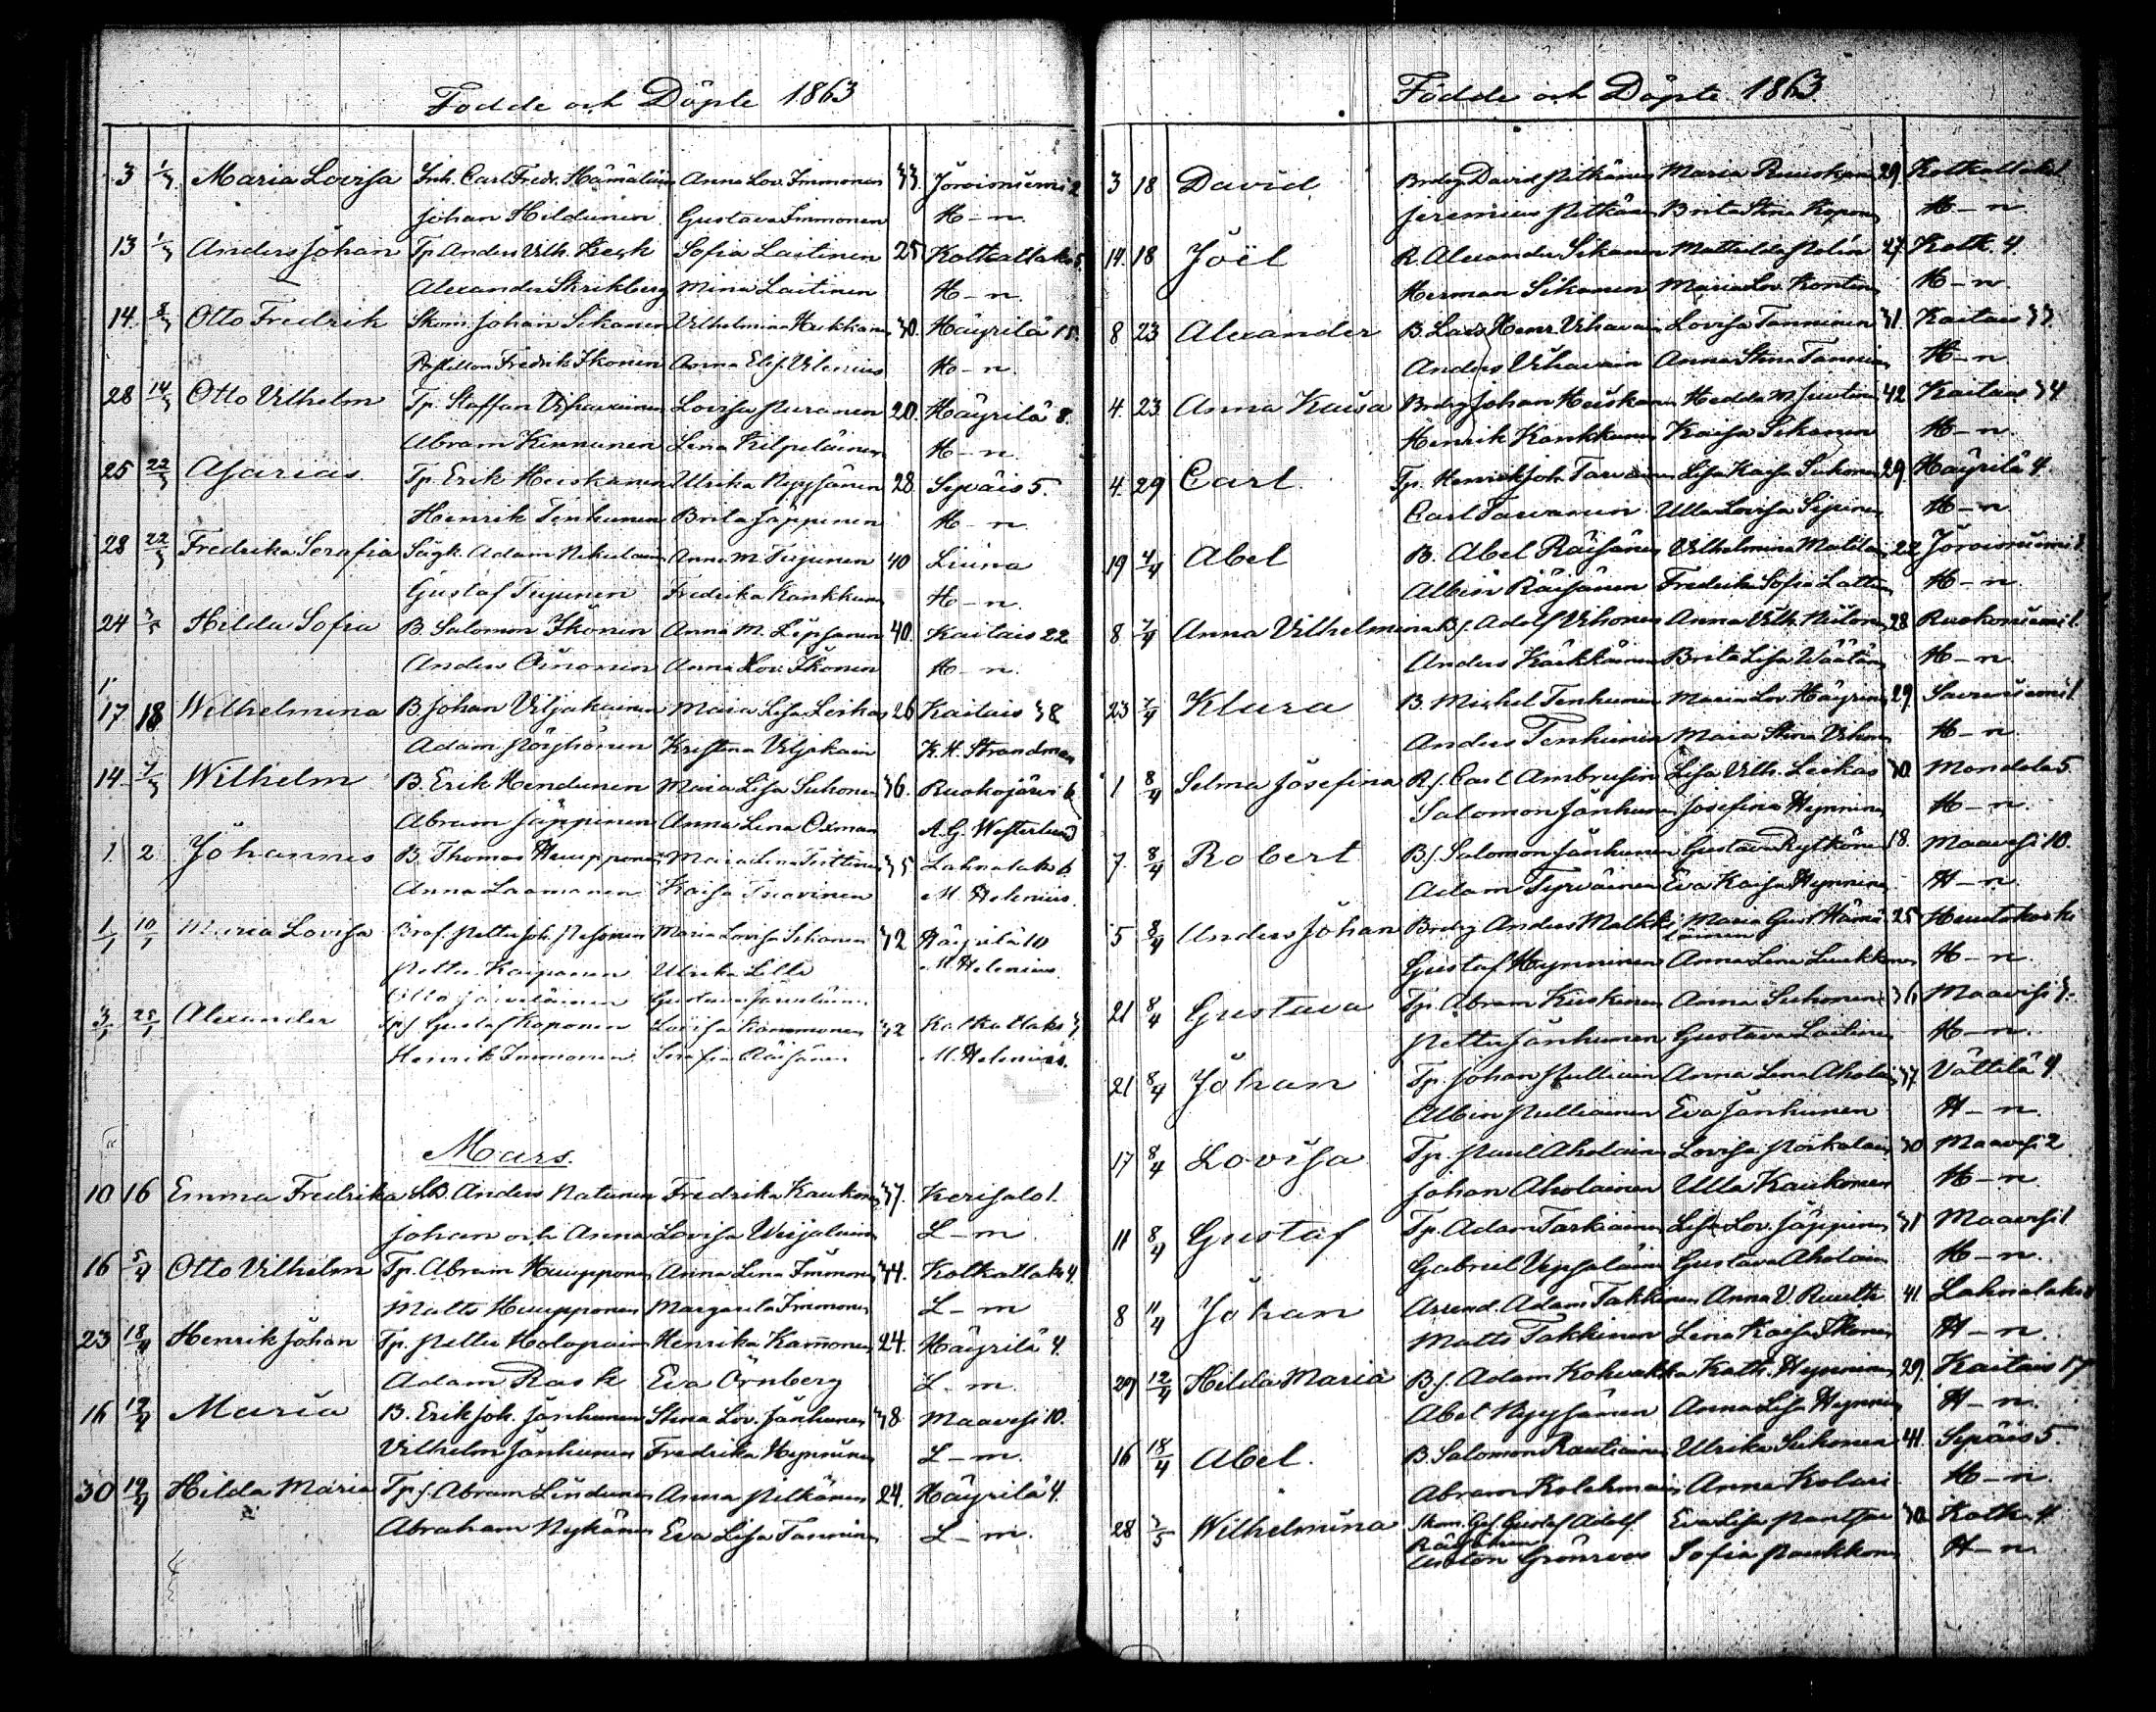 Födde och Döpte 1863
3 1/3 Maria Lovisa Inh. Carl Fredr. Hämäläin Anna Lov. Immonen 33. Joroisniemi 2
Johan Hildunen Gustava Immonen H-n.
13 1/3 Anders Johan Tp. Anders Vilh. Kesk Sofia Laitinen 25 Kolkatlaks 5.
Alexander Skrikberg Mina Laitinen H-n.
14. 8/3 Otto Fredrik Skom. Johan Sikanen Vilhelmina Kukkanen 30. Häyrilä 15.
Fredrik Ikonen Anna Elis. Vilenius H-n.
28 14/3 Otto Vilhelm Tp. Staffan Vihavainen Lovisa Puranen 20. Häyrilä 8.
Abram Kinnunen Lena Kilpeläinen H-n.
25 22/3 Asarias Tp. Erik Heiskanen Ulrika Nyyssönen 28. Sepäis 5.
Henrik Tenhunen Brita Jäppinen H-n.
28 22/3 Fredrika Serafia Sågk. Adam Nikulain Anna M. Turunen 40 Liuna
Gustaf Turunen Fredrika Kankkunen H-n.
24 3/5 Hilda Sofia B. Salomon Ikonen Anna M. Lipsanen 40. Kaitais 22
Anders Oinonen Anna Lov. Ikonen H-n.
17 18 Wilhelmina B. Johan Viljakainen Maria Lisa Leskas 26 Kaitais 38
Adam Pöyhönen Kristina Viljakain K.H. Strandman
14. 7/3 Wilhelm B. Erik Hendunen Maria Lisa Suhonen 36. Ruokojärvi 6
Abram Jäppinen Anna Lena Oxman A.G. Westerlund
1. 2 Johannes B. Thomas Huupponen Maria Lena Tiittinen 35 Lahnalaks 6.
Anna Laamanen Kaisa Tuovinen M. Helenius.
1/1 10/1 Maria Lovisa Petter Joh. Pesonen Maria Lovisa Sikanen 32 Häyrilä 10
Petter Kaipanen Ulrika Lilli M. Helenius.
Otto Gustava
3/1 25/1 Alexander Tps. Gustaf Koponen Lovisa Kammonen 32 Kolkatlaks 3
Henrik Immonen Serafia Räisänen M. Helenius.
Mars.
10 16 Emma Fredrika Anders Natunen Fredrika Kaukonen 37. Kerisalo 1.
Johan och Anna Lovisa Weijalain L-m
16 5/4 Otto Vilhelm Tp. Abram Huupponen Anna Lena Immonen 44. Kolkatlaks 4.
Matts Huupponen Margareta Immonen L-m
23 18/4 Henrik Johan Tp. Petter Holopain Henrika Kam̄onen 24. Häyrilä 4.
Adam Rask Eva Örnberg L-m.
16 19/4 Maria B. Erik Joh. Jänhunen Stina Lov. Jänhunen 38. Maavesi 10.
Vilhelm Jänhunen Fredrika Hynninen L-m.
30 19/4 Hilda Maria Tps. Abram Lindunen Anna Pitkänen 24. Häyrilä 4.
Abraham Nykänen Eva Lisa Tanninen L-m.
Födde och Döpte 1863.
3 18 David Brdeg David Pitkänen Maria Ruuskanen 29. Kolkatlaks 1
Jeremias Pitkänen Brita Stina Koponen H-n.
14. 18 Joël R. Alexander Sikanen Mathilda Polén 27 Kolk. 4.
Herman Sikanen Maria Lov. Kontinen H-n.
8 23 Alexander B. Lars Henr. Vihavain Lovisa Tanninen 31. Kaitais 33.
Anders Vihavain Anna Stina Tanninen H-n.
4. 23. Anna Kaisa Brdeg Johan Heiskanen Hedda M. Juutinen 42 Kaitais 34
Henrik Kankkunen Kaisa Sikanen H-n.
4. 29 Carl. Tp. Henrik Joh. Tarvainen Lisa Kaisa Suhonen 29. Häyrilä 4.
Carl Tarvainen Ulla Lovisa Sepinen H-n
19 4/4 Abel B. Abel Räisänen Vilhelmina Matilain 22 Joroisniemi 1.
Albin Räisänen Fredrika Sofia Lattu H-n.
8 7/4 Anna Vilhelmina Bs. Adolf Vihonen Anna Vilh. Niilonen 28 Ruokoniemi 1.
Anders Kärkkäinen Brita Lisa Väätänen H-n
23 7/4 Klara B. Michel Tenhunen Maria Lov. Häyrinen 29. Savuniemi 1.
Anders Tenhunen Maria Stina Vihonen H-n
1 8/4 Selma Josefina Rs. Carl Ambrusin Lisa Vilh. Leskas 30. Mondola 5.
Salomon Jänhunen Josefina Hynninen H-n.
7. 8/4 Robert Bs. Salomon Jänhunen Gustava Rytkönen 18. Maavesi 10.
Adam Tyrväinen Eva Kaisa Hynninen H-n.
5 8/4 Anders Johan Brdeg Anders Malkki Maria Gust. Hämäläinen 25 Huutokoski
Gustaf Hynninen Anna Lena Luukkonen H-n.
21 8/4 Gustava Tp. Abram Kiiskinen Anna Suhonen 36, Maavesi 3.
Petter Jänhunen Gustava Laitinen H-n.
21 8/4 Johan Tp. Johan Pulliain Anna Lena Aholain 37 Vättilä 4
Albin Pulliainen Eva Jänhunen H-n.
17 8/4 Lovisa Tp. Paul Aholain Lovisa Poikolain 30 Maavesi 2
Johan Aholainen Ulla Kaukonen H-n.
11 8/4 Gustaf Tp. Adam Tarkiainen Lisa Lov. Jäppinen 31 Maavesi 1
Gabriel Vepsäläin Gustava Aholain H-n.
8 11/4 Johan Arrend. Adam Takkinen Anna V. Ruuth 41. Lahnalaks
Matts Takkinen Lena Kaisa Ikonen H-n.
29 12/4 Hilda Maria Bs. Adam Kohvakka Kath. Hynninen 29. Kaitais 17
Abel Nyyssönen Anna Lisa Hynninen H-n.
16 18/4 Abel. B. Salomon Rautiainen Ulrika Suhonen 41. Sepäis 5.
Abram Kolehmain Anna Kolari H-n.
28 3/5 Wilhelmina Skom. Ges. Gustaf Adolf Räisänen Eva Lisa Pantsar 30. Kolk. 4
Anton Grönroos Sofia Paukkonen H-n